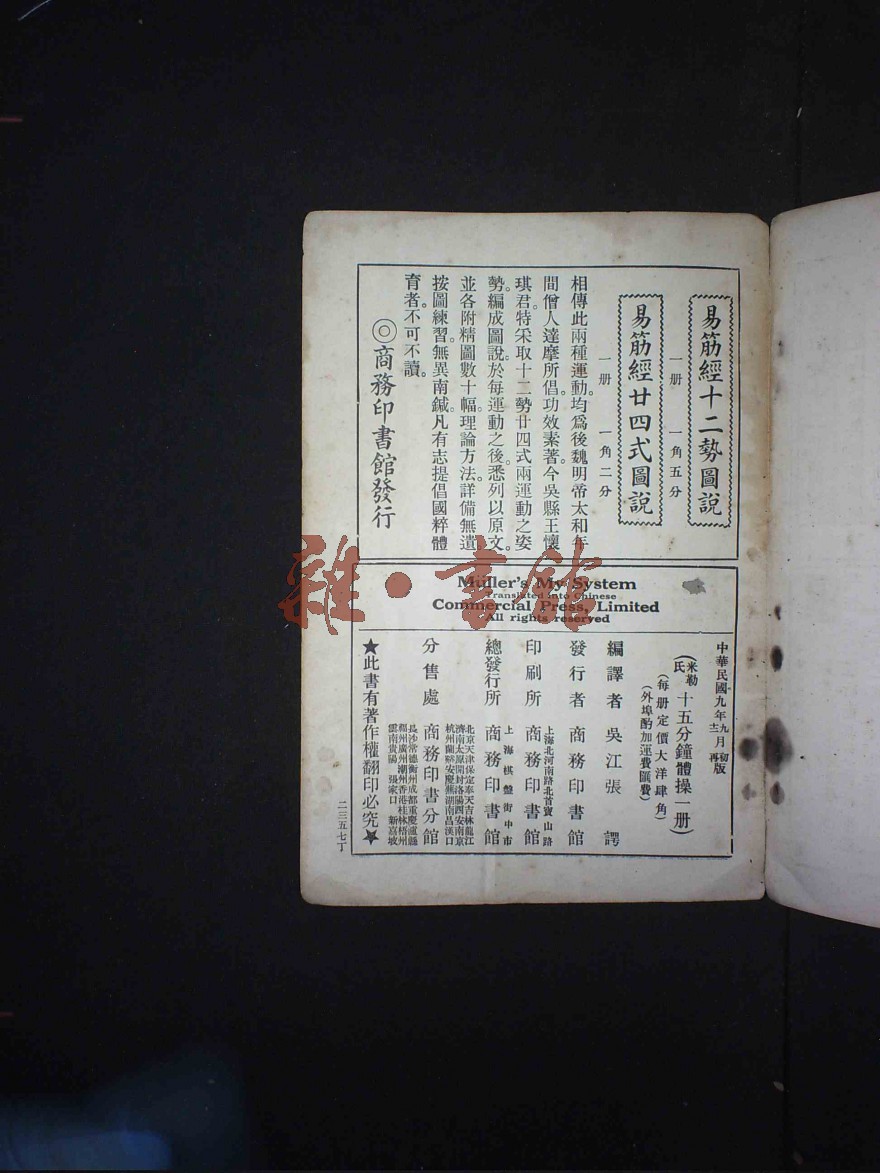 易筋經十二勢圖說
一册 一角五分
易筋經廿四式圖說
一册 一角二分
相傳此兩種運動。均爲後魏明帝太和年
間僧人達摩所倡。功效素著。今吳縣王懷
琪君。特采取十二勢廿四式兩運動之姿
勢。編成圖說。於每運動之後。悉列以原文。
並各附精圖數十幅。理論方法。詳備無遺。
按圖練習。無異南鍼。凡有志提倡國粹體
育者。不可不讀。
◎商務印書館發行
Müller's My System
Translated into Chinese
Commercial Press, Limited
All rights reserved
中華民國九年九月初版
十二月再版
(米勒氏十五分鐘體操一册)
(每册定價大洋肆角)
(外埠酌加運費匯費)
編譯者 吳江張諤
發行者 商務印書館
上海北河南路北首寶山路
印刷所 商務印書館
上海棋盤街中市
總發行所 商務印書館
北京天津保定奉天吉林龍江
濟南太原開封洛陽西安南京
杭州蘭谿安慶蕪湖南昌漢口
分售處 商務印書分館
長沙常德衡州成都重慶瀘縣
福州廣州潮州香港桂林梧州
雲南貴陽 張家口 新嘉坡
★此書有著作權翻印必究★
二三五七丁
雜·書館